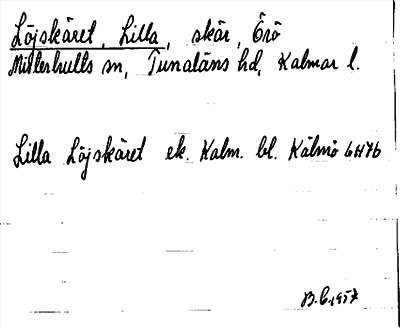 Löjskäret, Lilla, skär, Örö
Misterhults sn, Tunaläns hd, Kalmar l.
Lilla Löjskäret ek. Kalm. bl. Kälmö 6H7b
B.G. 1957